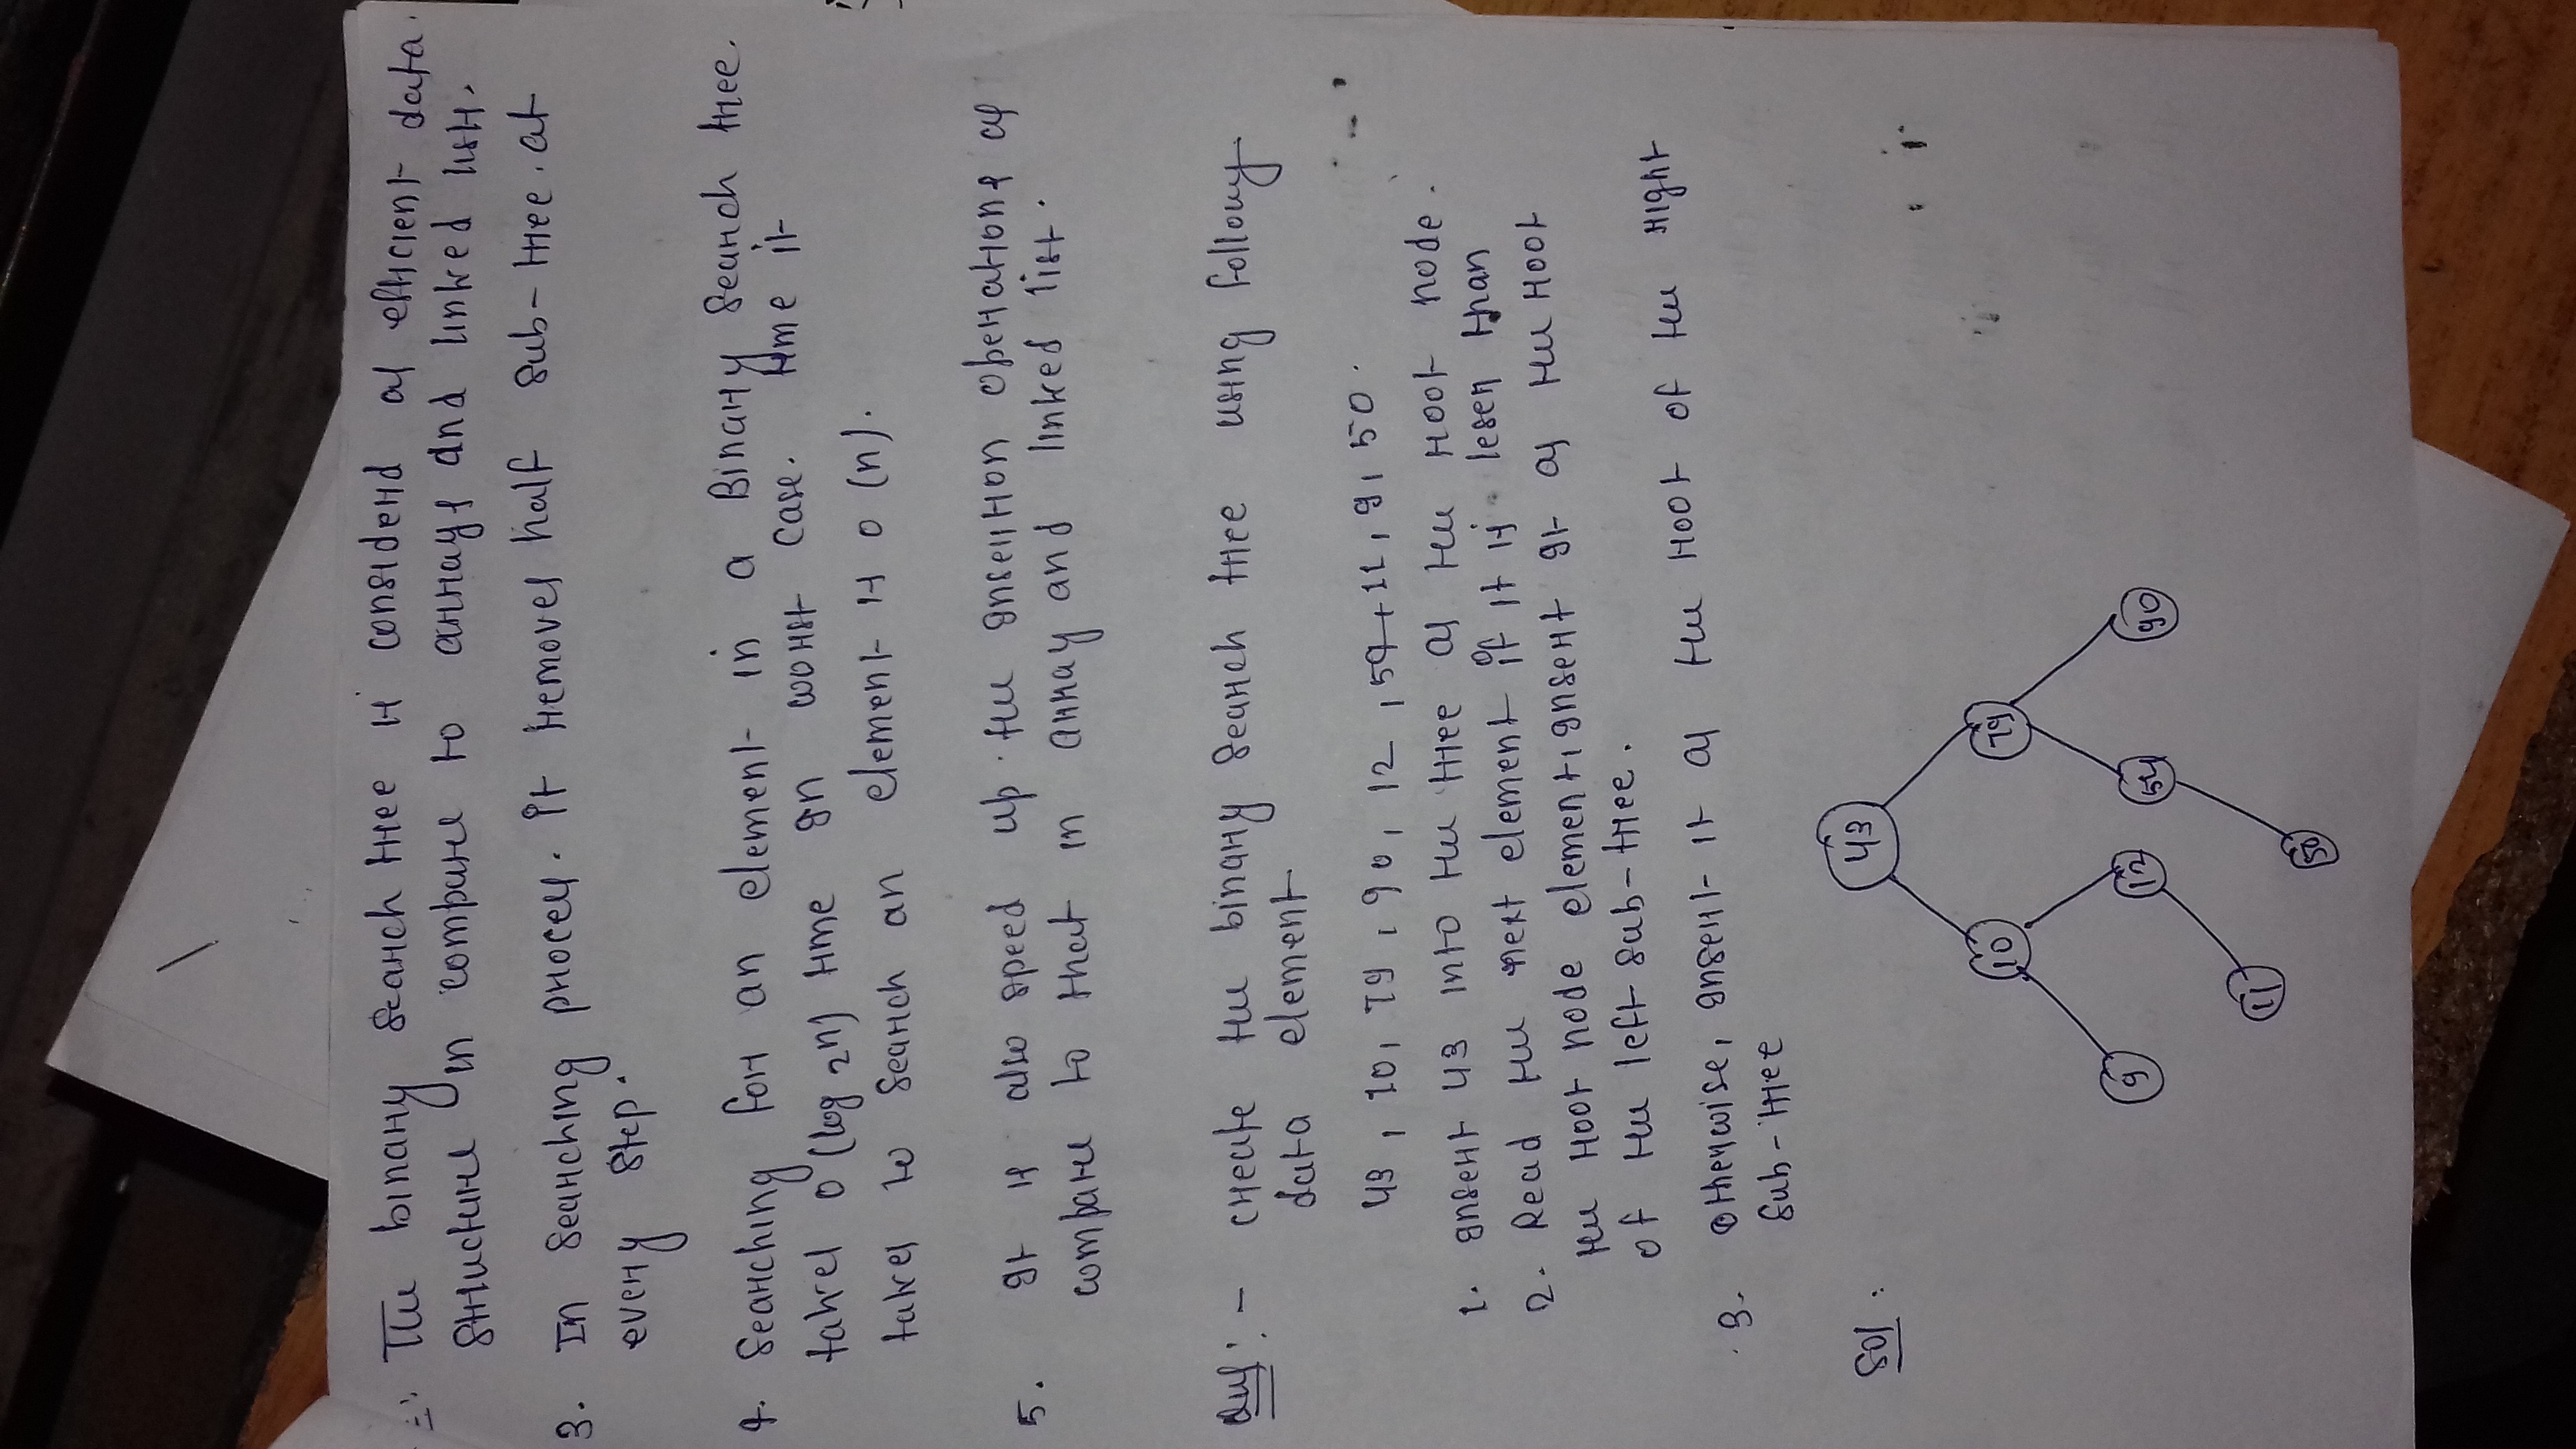 The binary search tree is considerd as efficient data
structure in compare to arrays and linked list.
3. In searching process. It removes half sub-tree. at
every step.
4. Searching for an element in a Binary search tree.
takes o(log 2n) time In worst case. time it
takes to search an element is o(n).
5. It is also speed up the insertion operations as
compare to that in array and linked list.
Ques:- create the binary search tree using following
data element
43, 10, 79, 90, 12, 54, 11, 9, 50.
1. Insert 43 into the tree as the root node.
2. Read the next element if it is lesser than
the root node element, insert it as the root
of the left sub-tree.
3. Otherwise, insert it as the root of the right
sub-tree
Sol:
43
10 79
9 12 54 90
11 50